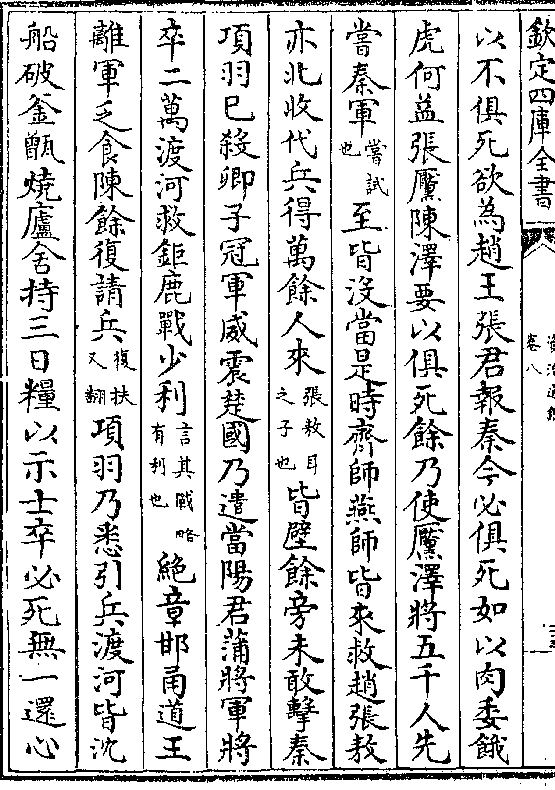 欽定四庫全書
卷八
以不俱死欲為趙王張君報秦今必俱死如以肉委餓
虎何益張黶陳澤要以俱死餘乃使黶澤將五千人先
嘗秦軍嘗試也至皆沒當是時齊師燕師皆來救趙張敖
亦北收代兵得萬餘人來張敖耳之子也皆壁餘旁未敢擊秦
項羽已殺卿子冠軍威震楚國乃遣當陽君蒲將軍將
卒二萬渡河救鉅鹿戰少利言其戰略有利也絶章邯甬道王
離軍乏食陳餘復請兵復扶又翻項羽乃悉引兵渡河皆沈
船破釜甑燒廬舍持三日糧以示士卒必死無一還心